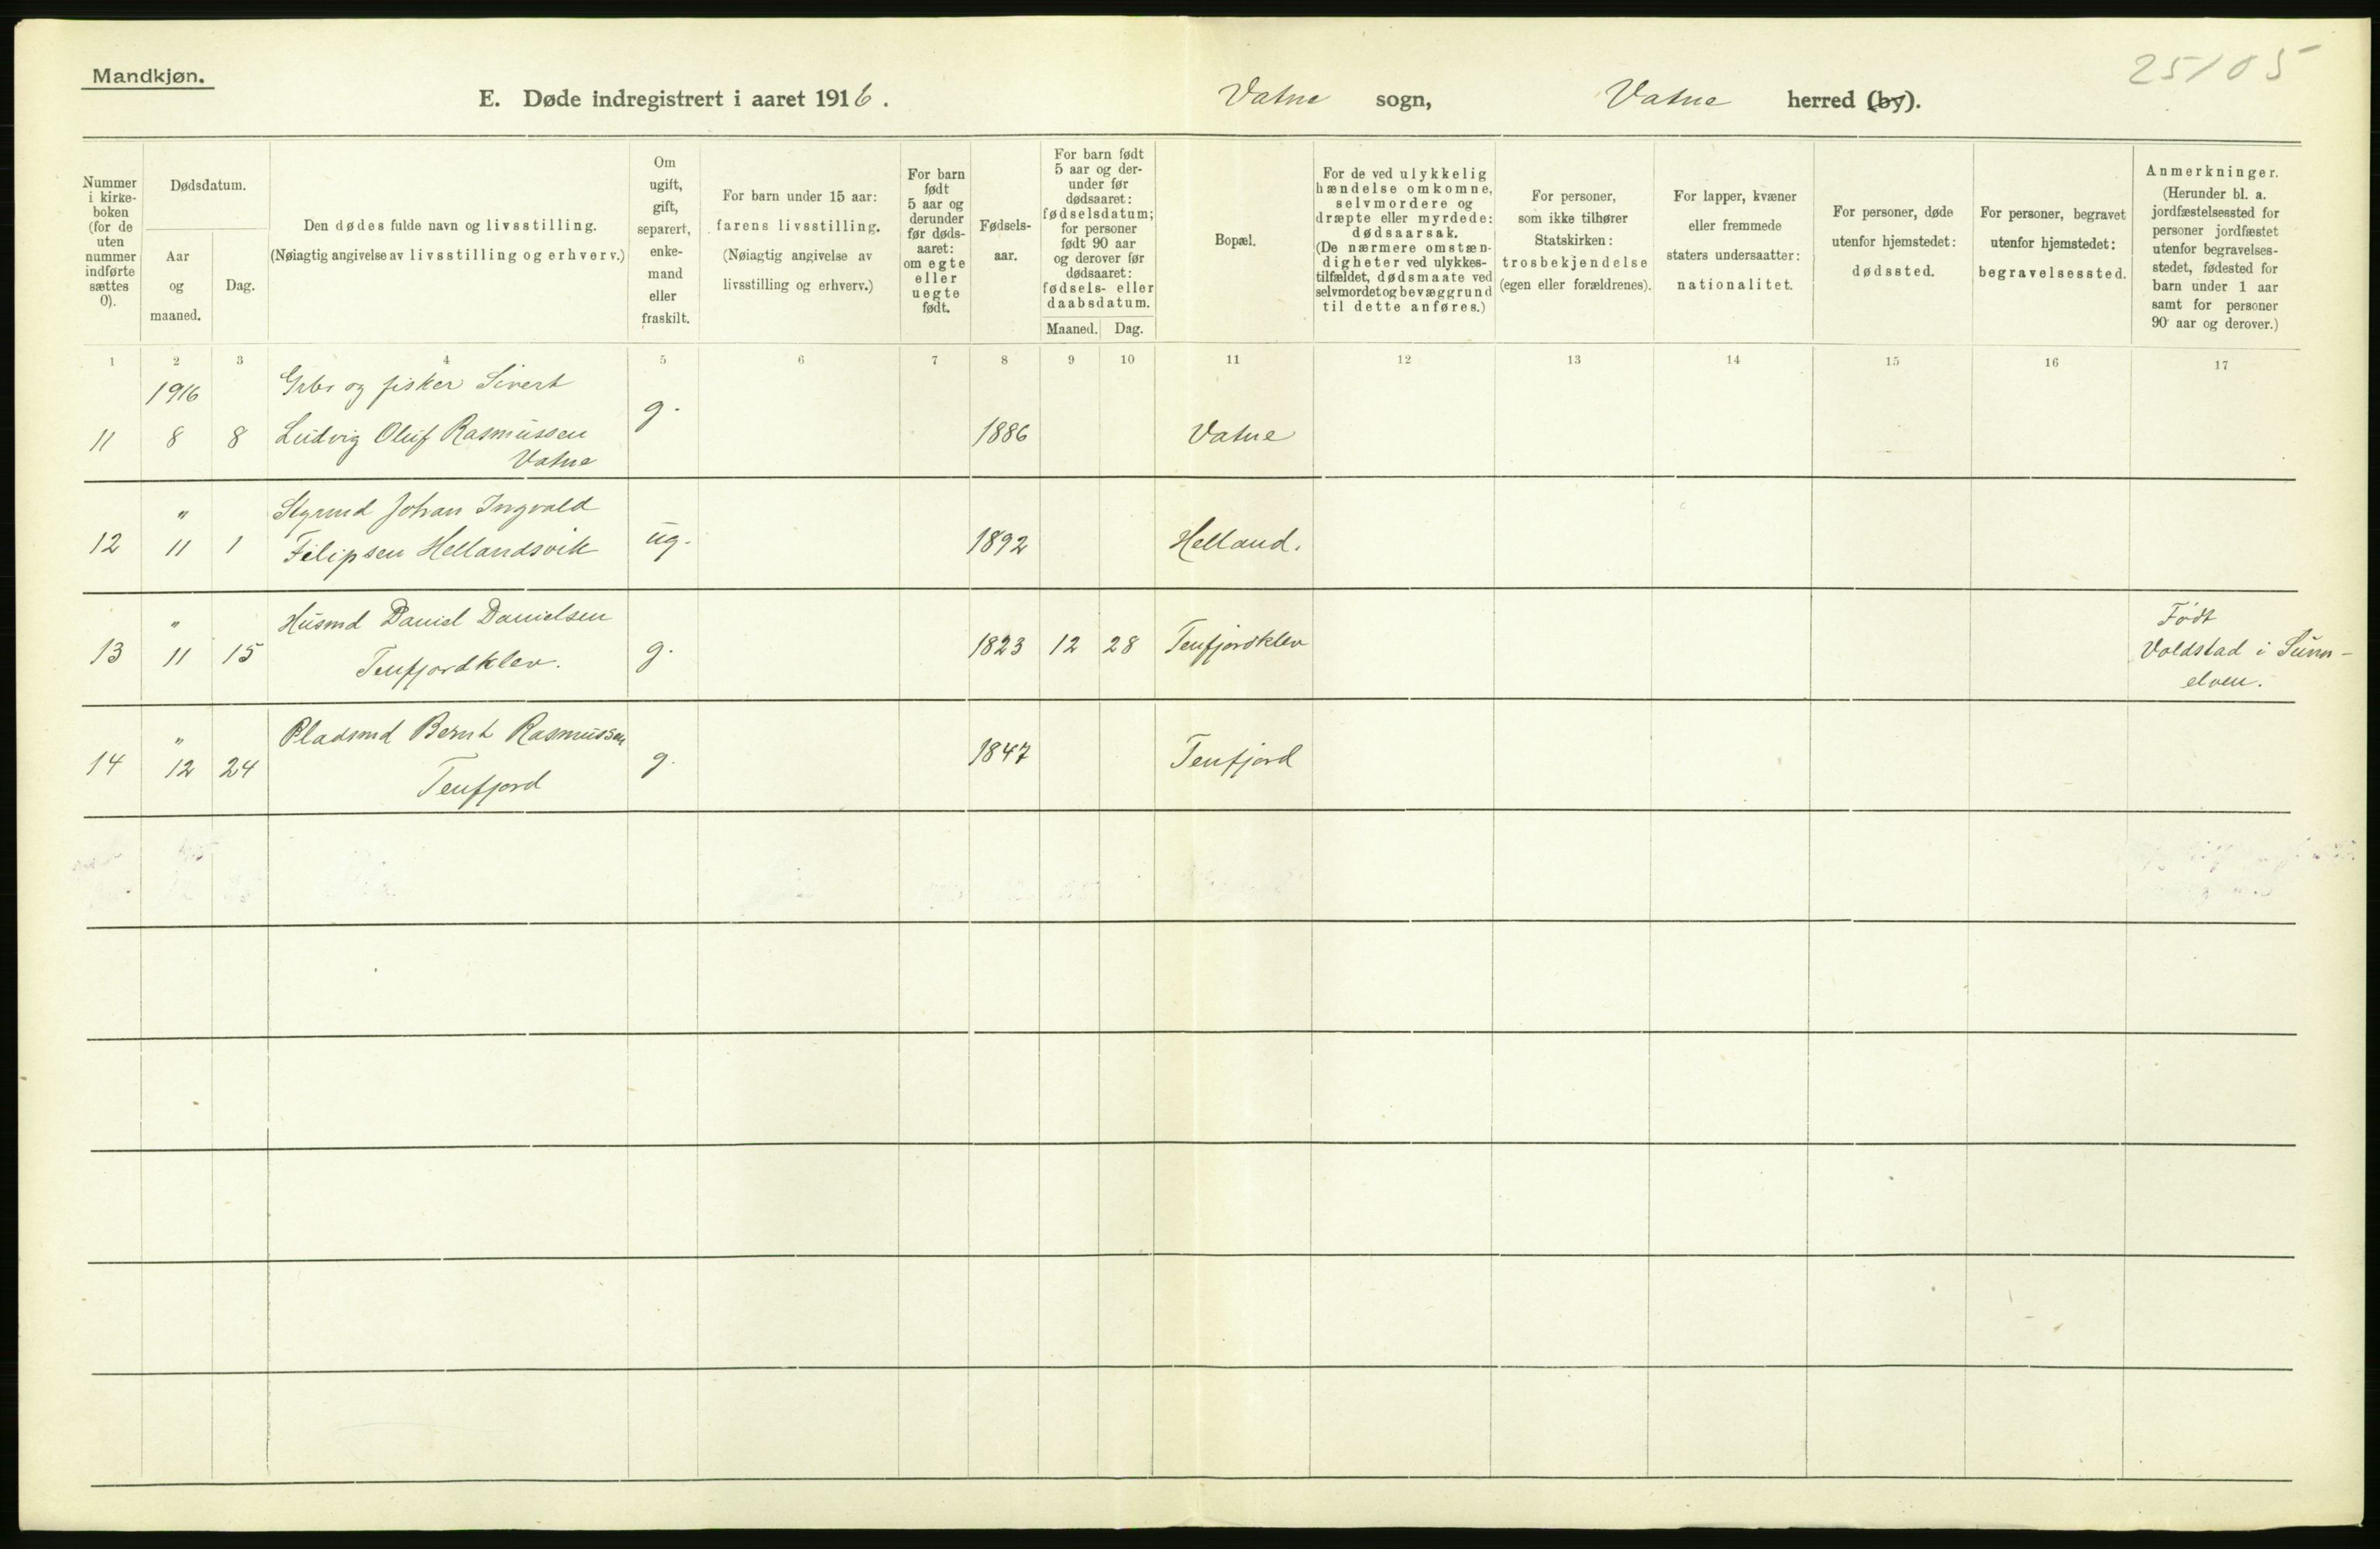 Mandkjøn.
25/05
E. Døde indregistrert i aaret 1916.
Vatne sogn, Vatne herred (by).
Nummer
i kirke-
boken
(for de
uten
nummer
indførte
sættes
0).
Dødsdatum.
Aar
og
maaned.
Dag.
Den dødes fulde navn og livsstilling.
(Nøiagtig angivelse av livsstilling og erhverv.)
Om
ugift,
gift,
separert,
enke-
mand
eller
fraskilt.
For barn under 15 aar:
farens livsstilling.
(Nøiagtig angivelse av
livsstilling og erhverv.)
For barn
født
5 aar og
derunder
før døds-
aaret:
om egte
eller
uegte
født.
Fødsels-
aar.
For barn født
5 aar og der-
under før
dødsaaret:
fødselsdatum;
for personer
født 90 aar
og derover før
dødsaaret:
fødsels- eller
daabsdatum.
Maaned. Dag.
Bopæl.
For de ved ulykkelig
hændelse omkomne,
selvmordere og
dræpte eller myrdede:
dødsaarsak.
(De nærmere omstæn-
digheter ved ulykkes-
tilfældet, dødsmaate ved
selvmordet og bevæggrund
til dette anføres.)
For personer,
som ikke tilhører
Statskirken:
trosbekjendelse
(egen eller forældrenes).
For lapper, kvæner
eller fremmede
staters undersaatter:
nationalitet.
For personer, døde
utenfor hjemstedet:
dødssted.
For personer, begravet
utenfor hjemstedet:
begravelsessted.
Anmerkninger.
(Herunder bl. a.
jordfæstelsessted for
personer jordfæstet
utenfor begravelses-
stedet, fødested for
barn under 1 aar
samt for personer
90 aar og derover.)
1 2 3 4 5 6 7 8 9 10 11 12 13 14 15 16 17
1916 Grbr og fisker Sivert
11 8 8 Ludvig Oluf Rasmussen g. 1886 Vatne
Vatne
" Styrmd Johan Ingvald
12 11 1 Filipsen Hellandsvik ug. 1892 Helland.
" Husmd Daniel Danielsen Født
13 11 15 Tenfjordklev. g. 1823 12 28 Tenfjordklev Voldstad i Sunn-
elven.
" Pladsmd Bernt Rasmussen
14 12 24 Tenfjord g. 1847 Tenfjord